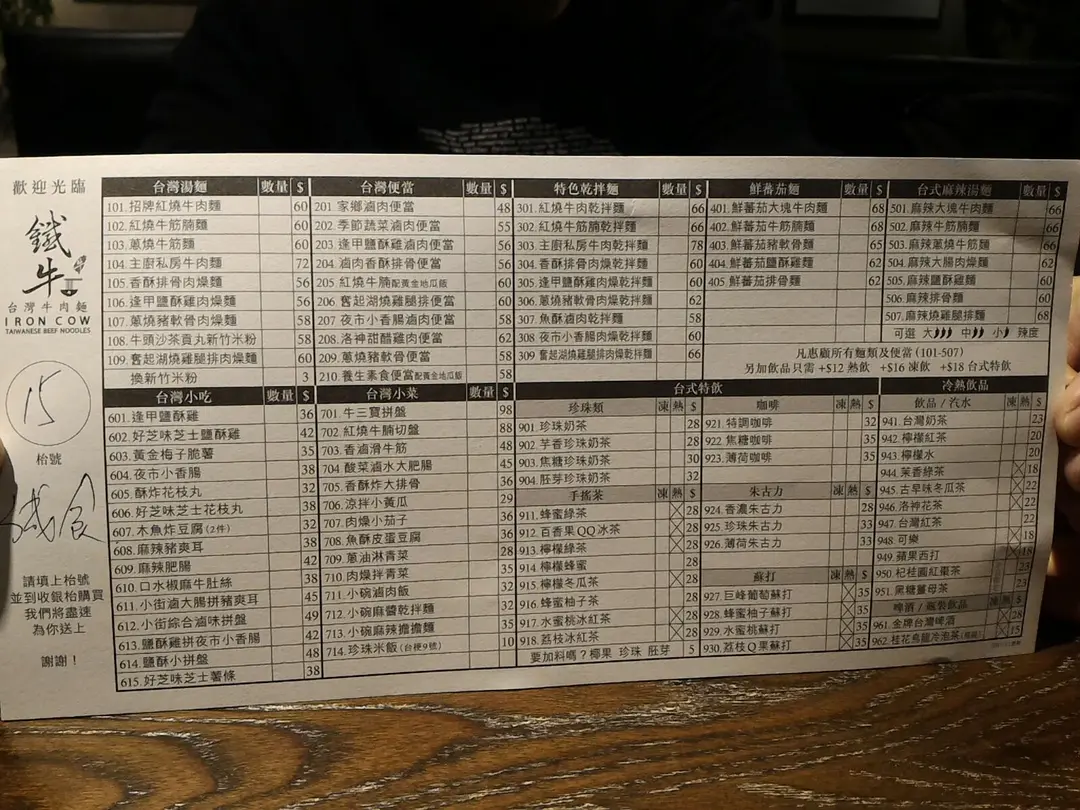 歡迎光臨
鐵牛
台灣牛肉麵
IRON COW
TAIWANESE BEEF NOODLES
15
枱號
請填上枱號
並到收銀枱購買
我們將盡速
為你送上
謝謝！
台灣湯麵 數量 $
101.招牌紅燒牛肉麵 60
102.紅燒牛筋腩麵 60
103.蔥燒牛筋麵 60
104.主廚私房牛肉麵 72
105.香酥排骨肉燥麵 56
106.逢甲鹽酥雞肉燥麵 56
107.蔥燒豬軟骨肉燥麵 58
108.牛頭沙茶貢丸新竹米粉 58
109.奮起湖燒雞腿排肉燥麵 60
換新竹米粉 3
台灣便當 數量 $
201.家鄉滷肉便當 48
202.季節蔬菜滷肉便當 55
203.逢甲鹽酥雞滷肉便當 56
204.滷肉香酥排骨便當 56
205.紅燒牛腩配黃金地瓜飯 60
206.奮起湖燒雞腿排便當 60
207.夜市小香腸滷肉便當 58
208.洛神甜醋雞肉便當 62
209.蔥燒豬軟骨便當 58
210.養生素食便當配黃金地瓜飯 58
特色乾拌麵 數量 $
301.紅燒牛肉乾拌麵 66
302.紅燒牛筋腩乾拌麵 66
303.主廚私房牛肉乾拌麵 78
304.香酥排骨肉燥乾拌麵 60
305.逢甲鹽酥雞肉燥乾拌麵 60
306.蔥燒豬軟骨肉燥乾拌麵 62
307.魚酥滷肉乾拌麵 58
308.夜市小香腸肉燥乾拌麵 60
309.奮起湖燒雞腿排肉燥乾拌麵 66
鮮蕃茄麵 數量 $
401.鮮蕃茄大塊牛肉麵 68
402.鮮蕃茄牛筋腩麵 68
403.鮮蕃茄豬軟骨麵 65
404.鮮蕃茄鹽酥雞麵 62
405.鮮蕃茄排骨麵 62
台式麻辣湯麵 數量 $
501.麻辣大塊牛肉麵 66
502.麻辣牛筋腩麵 66
503.麻辣蔥燒牛筋麵 66
504.麻辣大腸肉燥麵 62
505.麻辣鹽酥雞麵 60
506.麻辣排骨麵 60
507.麻辣豬軟骨麵 68
可選 大 中 小 辣度
凡惠顧所有麵類及便當 (101-507)
另加飲品只需 +$12 熱飲 +$16 凍飲 +$18 台式特飲
台灣小吃 數量 $
601.逢甲鹽酥雞 36
602.好芝味芝士鹽酥雞 42
603.黃金梅子脆薯 35
604.夜市小香腸 38
605.酥炸花枝丸 32
606.好芝味芝士花枝丸 38
607.木魚炸豆腐(2件) 32
608.麻辣豬爽耳 38
609.麻辣肥腸 42
610.口水椒麻牛肚絲 38
611.小街滷大腸拼豬爽耳 45
612.小街綜合滷味拼盤 49
613.鹽酥雞拼夜市小香腸 42
614.鹽酥小拼盤 48
615.好芝味芝士薯條 38
台灣小菜 數量 $
701.牛三寶拼盤 98
702.紅燒牛腩切盤 88
703.香滷滑牛筋 48
704.酸菜滷水大肥腸 45
705.香酥炸大排骨 36
706.涼拌小黃瓜 29
707.肉燥小茄子 36
708.魚酥皮蛋豆腐 36
709.蔥油淋青菜 28
710.肉燥拌青菜 35
711.小碗滷肉飯 32
712.小碗麻醬乾拌麵 32
713.小碗麻辣擔擔麵 35
714.珍珠米飯(台梗9號) 10
台式特飲
珍珠類 凍 熱 $
901.珍珠奶茶 28
902.芋香珍珠奶茶 28
903.焦糖珍珠奶茶 30
904.胚芽珍珠奶茶 32
手搖茶 凍 熱 $
911.蜂蜜綠茶 28
912.百香果QQ冰茶 28
913.檸檬綠茶 28
914.檸檬蜂蜜 28
915.檸檬冬瓜茶 28
916.蜂蜜柚子茶 28
917.水蜜桃冰紅茶 28
918.荔枝冰紅茶 28
要加料嗎？椰果 珍珠 胚芽 5
咖啡 凍 熱 $
921.特調咖啡 32
922.焦糖咖啡 35
923.薄荷咖啡 35
朱古力 凍 熱 $
924.香濃朱古力 28
925.珍珠朱古力 33
926.薄荷朱古力 33
蘇打 凍 熱 $
927.巨峰葡萄蘇打 35
928.蜂蜜柚子蘇打 35
929.水蜜桃蘇打 35
930.荔枝Q果蘇打 35
冷熱飲品
飲品 / 汽水 凍 熱 $
941.台灣奶茶 23
942.檸檬紅茶 20
943.檸檬水 20
944.茉香綠茶 18
945.古早味冬瓜茶 22
946.洛神花茶 22
947.台灣紅茶 18
948.可樂
949.蘋果西打 18
950.杞桂圓紅棗茶 23
951.黑糖薑母茶 23
啤酒 / 瓶裝飲品 凍 熱 $
961.金牌台灣啤酒 28
962.桂花烏龍冷泡茶 15